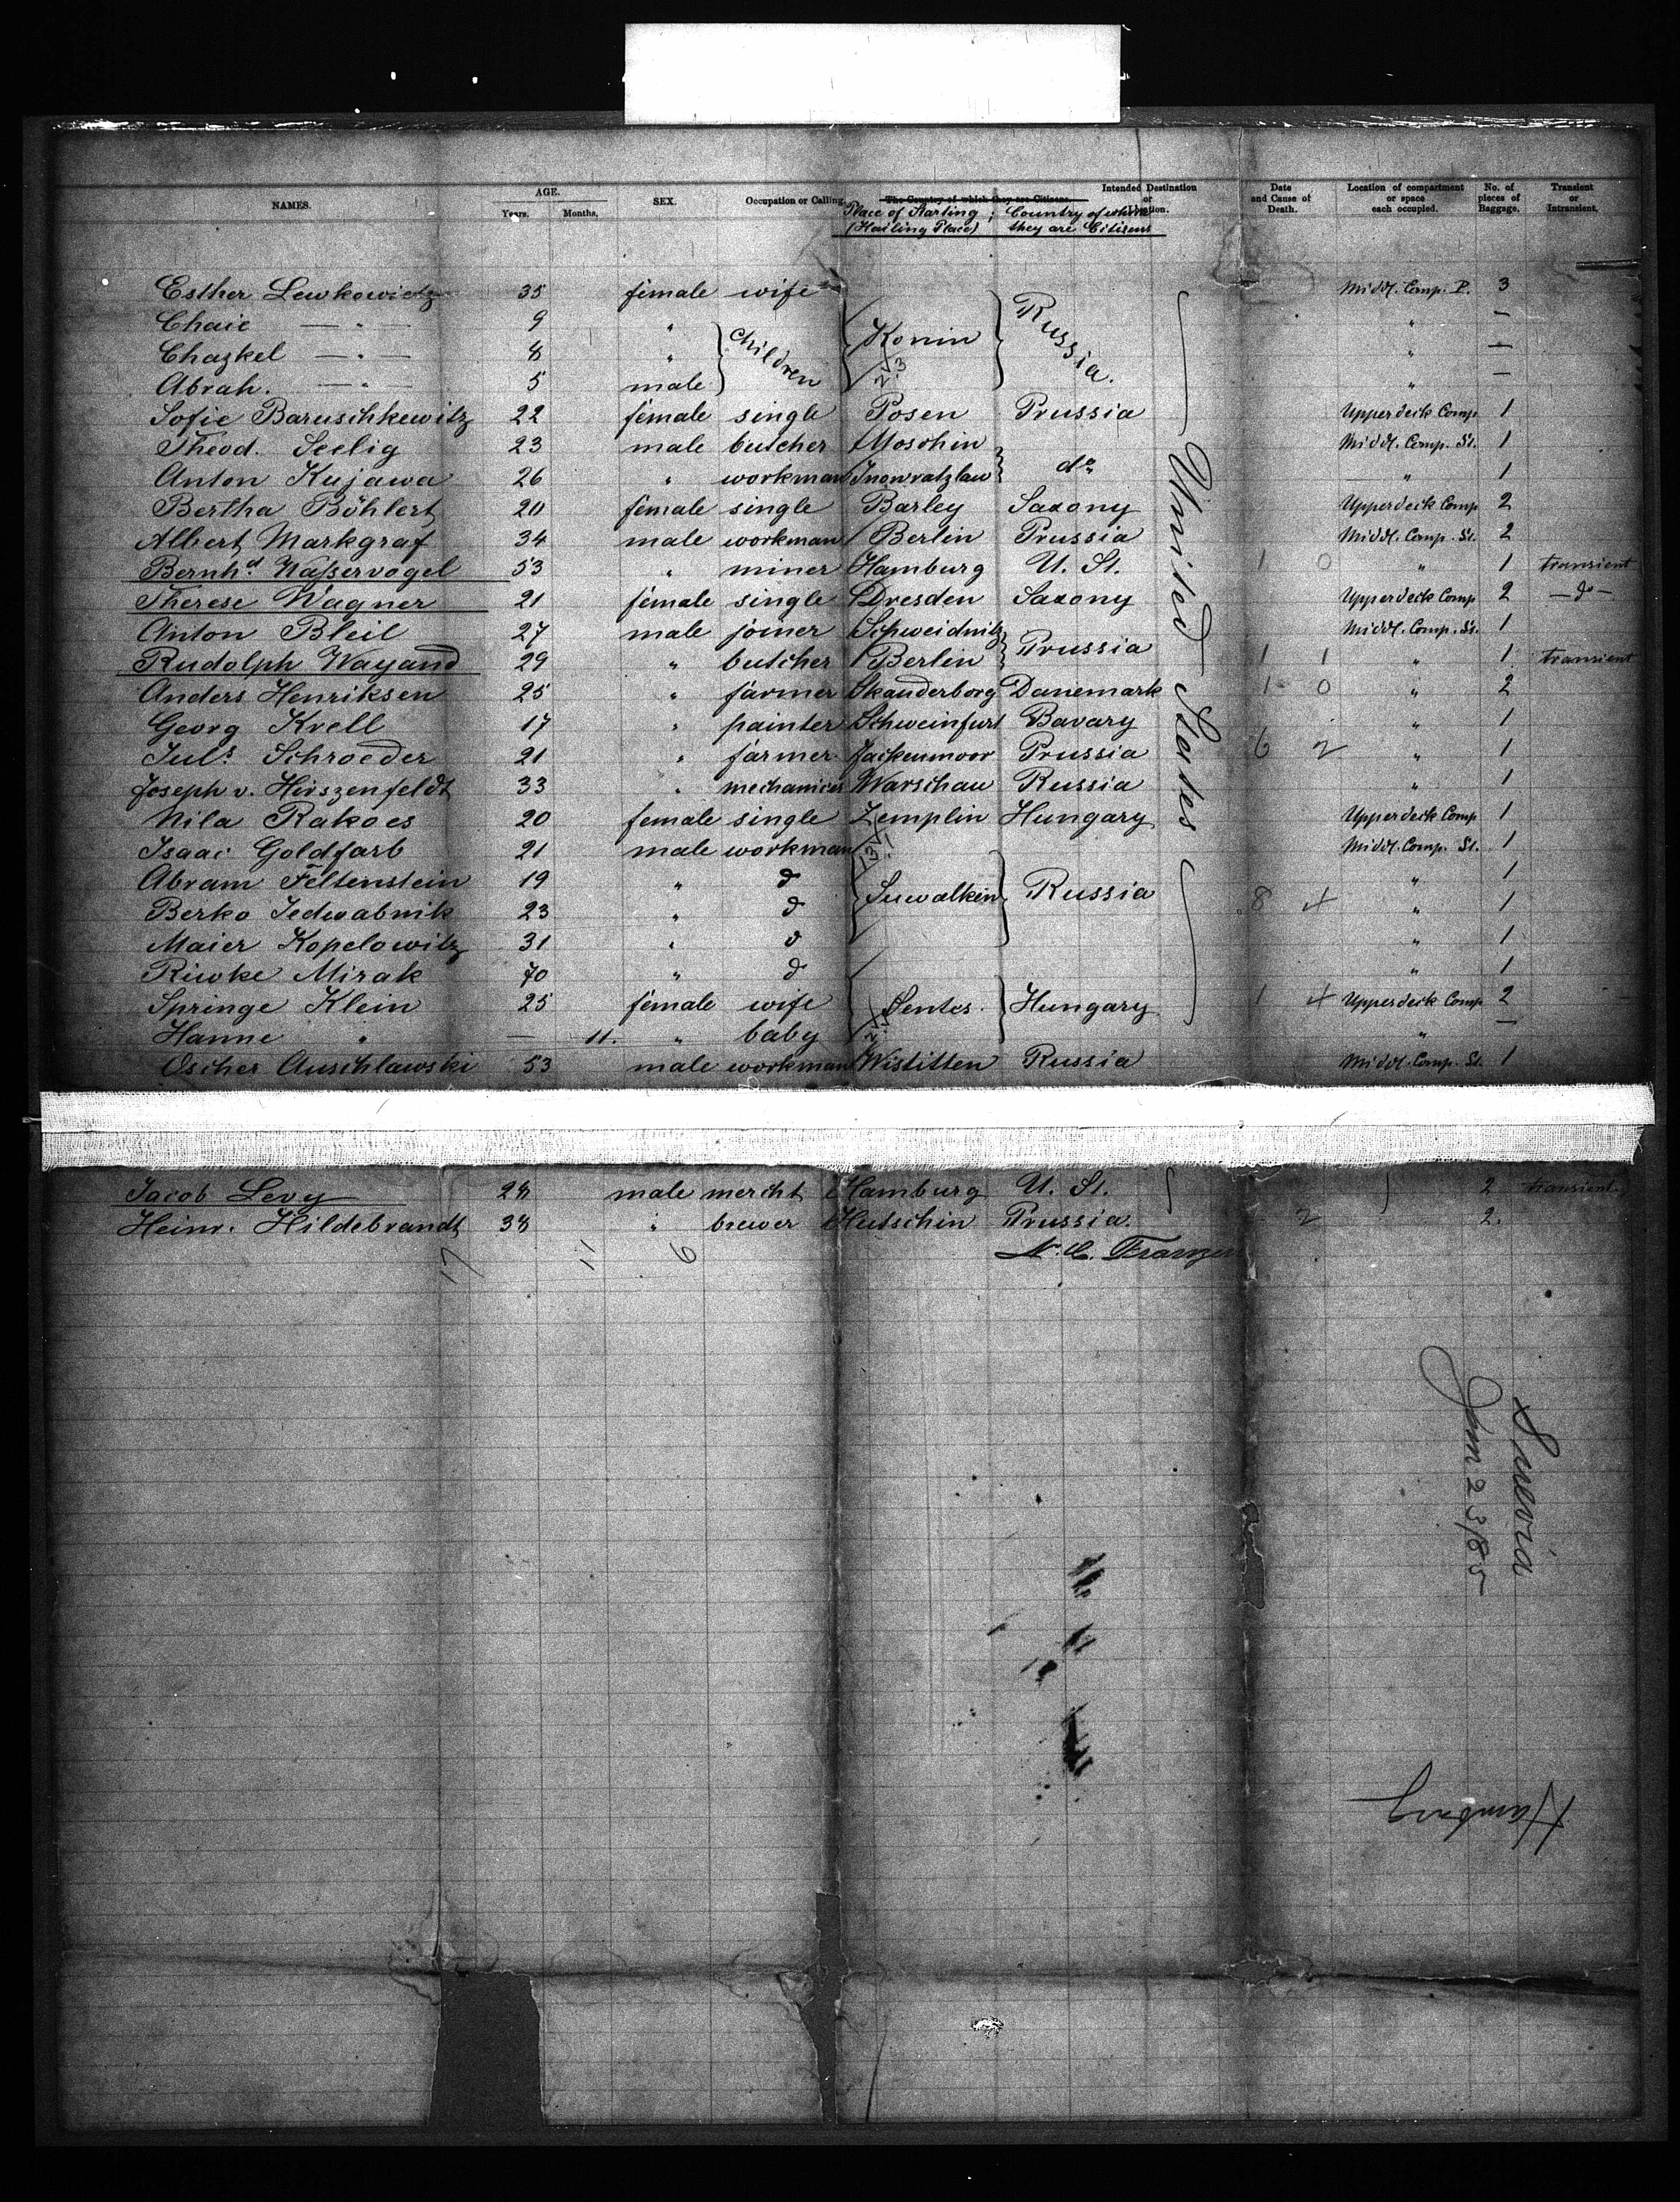 NAMES. AGE. Years. Months. SEX. Occupation or Calling. The Country of which they are Citizens. Intended Destination or Location. Date and Cause of Death. Location of compartment or space each occupied. No. of pieces of Baggage. Transient or Intransient.
Place of Starting (Hailing Place) ; Country of which they are Citizens
Esther Lewkowietz 35 female wife Middl. Comp. P. 3
Chaie — " — 9 " children Konin Russia. " —
Chazkel — " — 8 " " —
Abrah. — " — 5 male " —
Sofie Baruschkewitz 22 female single Posen Prussia Upperdeck Comp 1
Theod. Seelig 23 male butcher Moschin Middl. Comp. St. 1
Anton Kujawa 26 " workman Inowratzlaw do " 1
Bertha Böhlert 20 female single Barley Saxony Upperdeck Comp 2
Albert Markgraf 34 male workman Berlin Prussia Middl. Comp. St. 2
Bernhd Waßervogel 53 " miner Hamburg U. St. 1 0 " 1 transient
Therese Wagner 21 female single Dresden Saxony Upperdeck Comp 2 — do —
Anton Bleil 27 male joiner Schweidnitz Prussia Middl. Comp. St. 1
Rudolph Wayand 29 " butcher Berlin 1 1 " 1 transient
Anders Henriksen 25 " farmer Skanderborg Danemark 1 0 " 2
Georg Krell 17 " painter Schweinfurt Bavary " 1
Juls Schroeder 21 " farmer Jackenmoor Prussia 6 2 " 1
Joseph v. Hirszenfeldt 33 " mechanicus Warschau Russia " 1
Nila Rakoes 20 female single Zemplin Hungary Upperdeck Comp 1
Isaac Goldfarb 21 male workman Middl. Comp. St. 1
Abram Feltenstein 19 " d Suwalken Russia " 1
Berko Jedwabnik 23 " d 8 4 " 1
Maier Kopelowitz 31 " d " 1
Riwke Mirak 70 " d " 1
Springe Klein 25 female wife Sentes Hungary 1 4 Upperdeck Comp 2
Hanne " — 11. " baby " —
Oscher Auschlawski 53 male workman Wistitten Russia Middl. Comp. St. 1
United States
Jacob Levy 28 male mercht Hamburg U. St. 2 transient.
Heinr. Hildebrandt 38 " brewer Hutschin Prussia. 2 2.
17 11 6
N. C. Franzen
Suevia
Jan 23/85
Hamburg